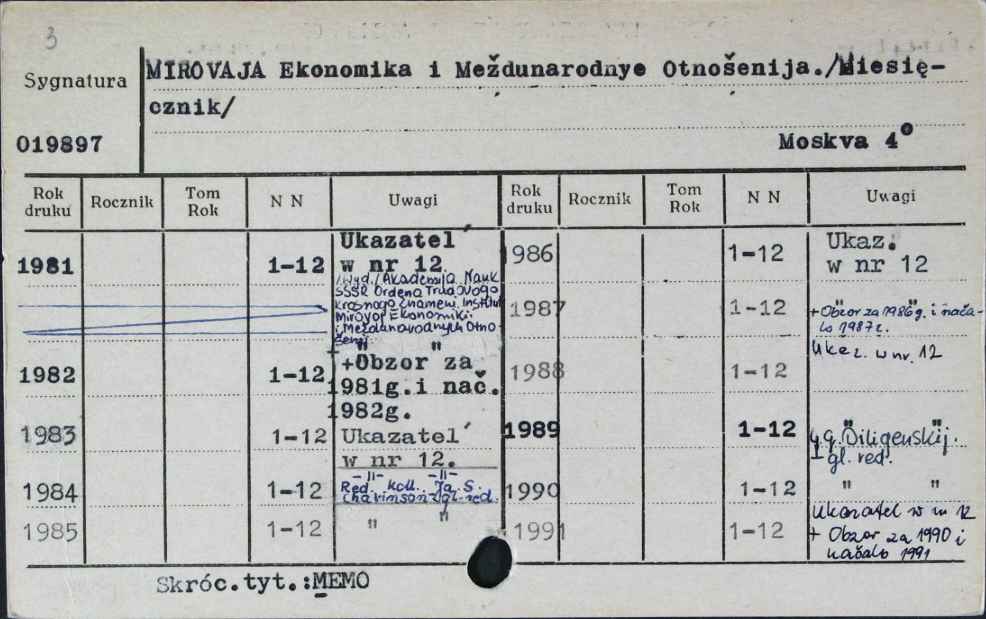 3
Sygnatura
MIROVAJA Ekonomika i Meždunarodnye Otnošenija./Miesię-
cznik/
019897
Moskva 4°
Rok druku Rocznik Tom Rok N N Uwagi Rok druku Rocznik Tom Rok N N Uwagi
1981 1-12 Ukazatel´
w nr 12
/Wyd./Akademija Nauk
SSSR Ordena Trudovogo
Krasnogo Znameni Institut
Mirovoj Ekonomiki
i Meždunarodnych Otno-
šenij
" "
1982 1-12 +Obzor za
1981g.i nač.
1982g.
1983 1-12 Ukazatel´
w nr 12.
1984 1-12 -||- -||-
Red. koll. Ja. S.
gl. red.
1985 1-12 " "
1986 1-12 Ukaz.
w nr 12
1987 1-12 " "
+ Obzor za 1986g. i nača-
lo 1987 r.
1988 1-12 Ukaz. w nr. 12
1989 1-12 " "
Diligenskij.
gl. red.
1990 1-12 " "
1991 1-12 Ukazatel w nr 12
+ Obzor za 1990 i
načalo 1991
Skróc.tyt.:MEMO